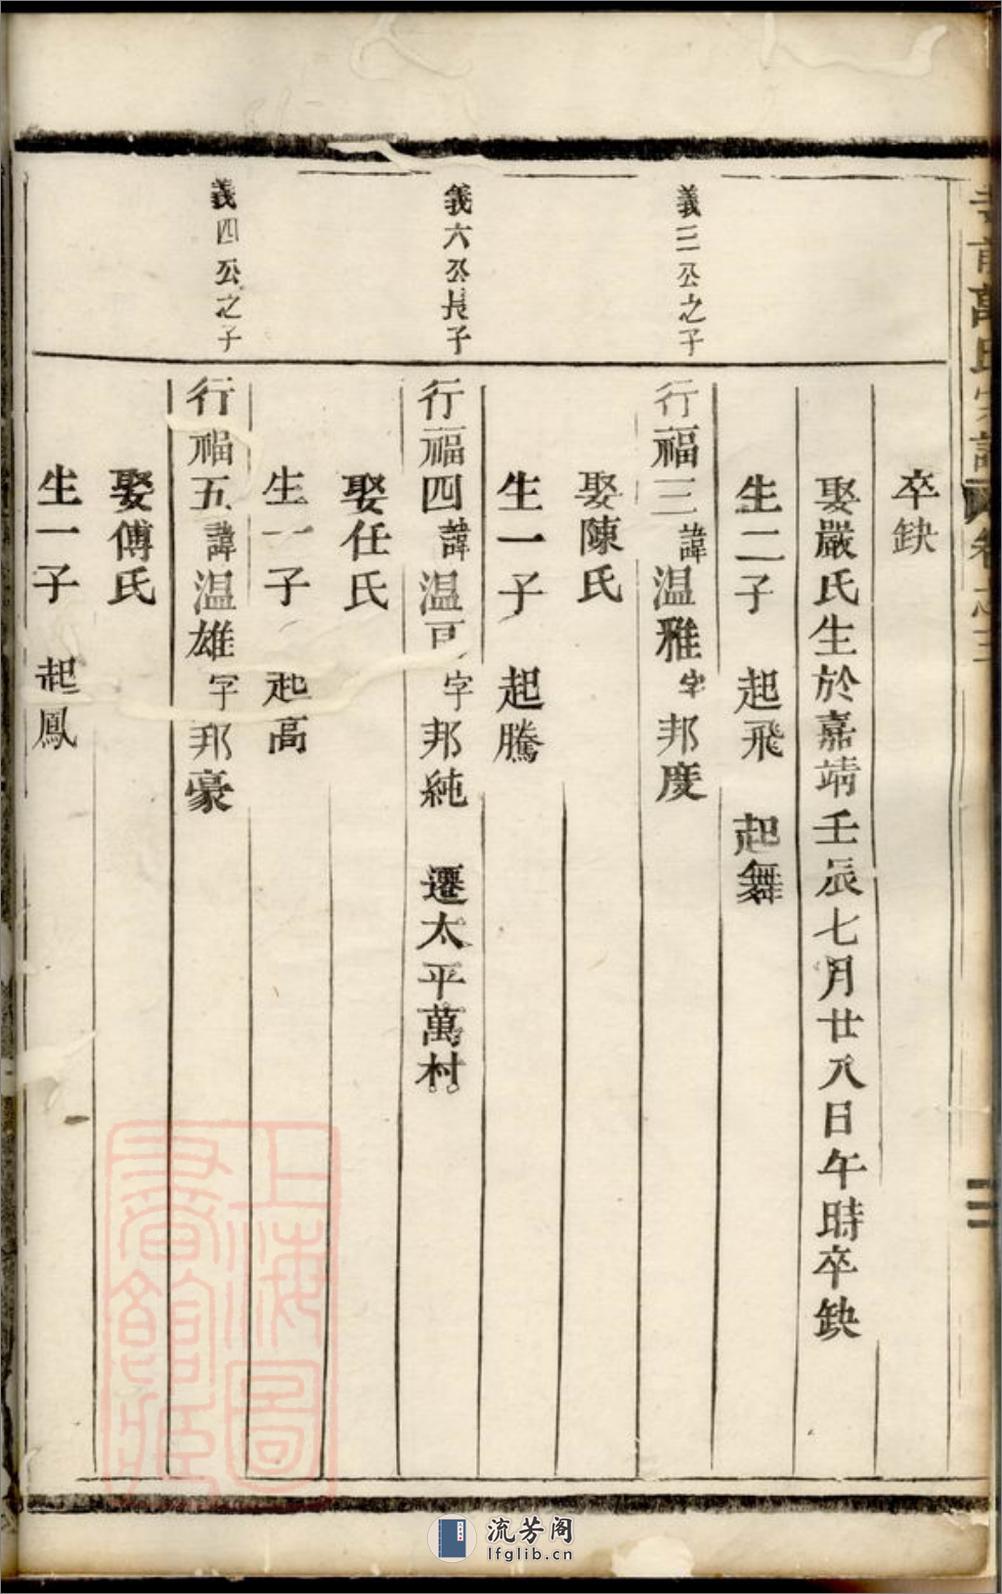 卒缺
娶嚴氏生於嘉靖壬辰七月廿八日午時卒缺
生二子 起飛 起舞
義三公之子
行福三諱温雅字邦度
娶陳氏
生一子 起騰
義六公長子
行福四諱温字邦純 遷太平萬村
娶任氏
生一子 起高
義四公之子
行福五諱温雄字邦豪
娶傅氏
生一子 起鳳
上海圖
書館藏
流芳阁
lfglib.cn